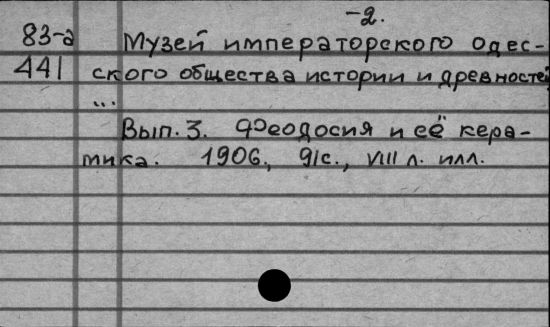 -2.
83-2 Музей императорского одес-
441 ского общества истории и древностей
...
Вып. 3. Феодосия и её кера-
мика. 1906., 91с., VIII л. илл.